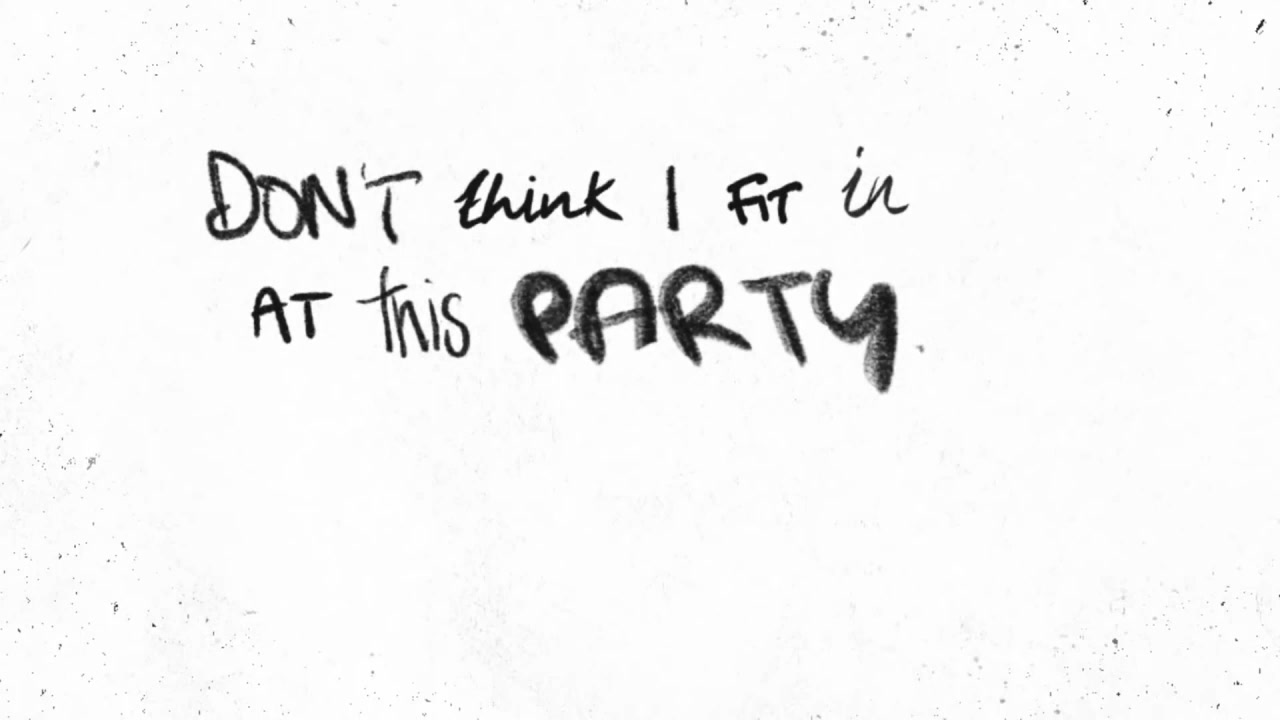 DON'T think I FiT in
AT this PARTY